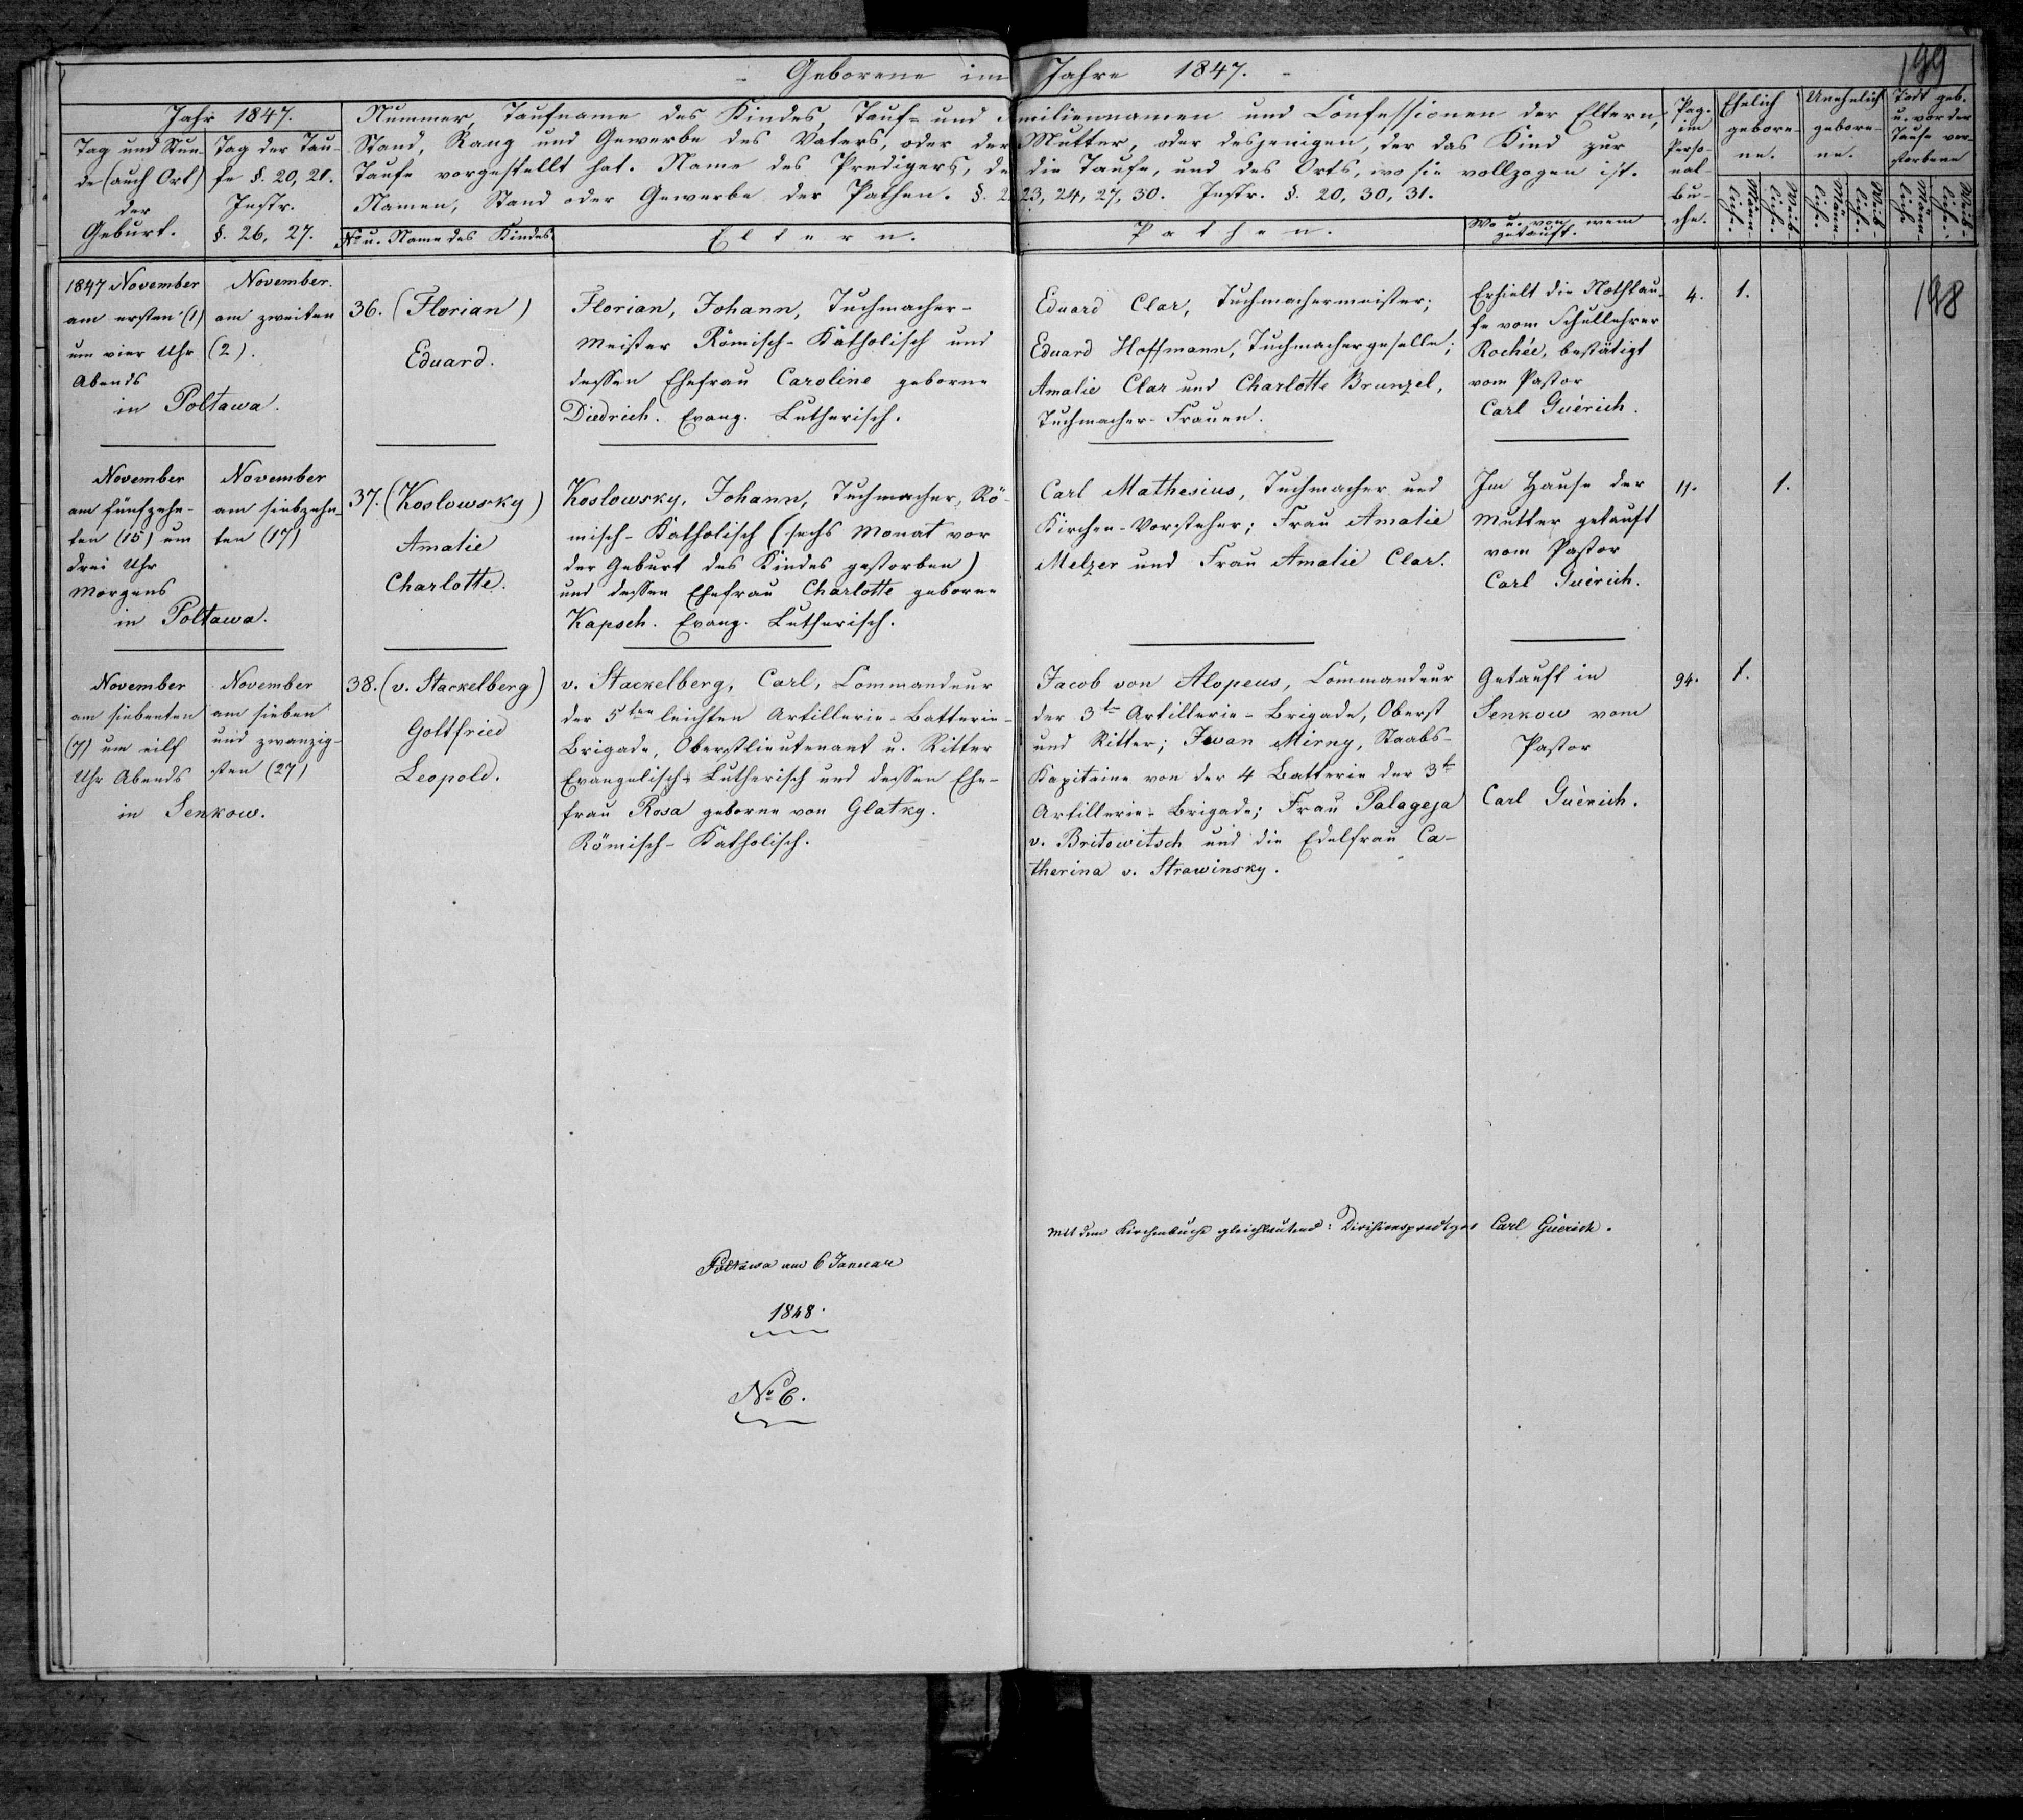 - Geborene im Jahre 1847. -
199
Jahr 1847.
Tag und Stun-
de (auch Ort)
der
Geburt.
Tag der Tau-
fe §. 20, 21.
Instr.
§. 26, 27.
Nummer, Taufname des Kindes, Tauf- und Familiennamen und Confessionen der Eltern,
Stand, Rang und Gewerbe des Vaters, oder der Mutter, oder desjenigen, der das Kind zur
Taufe vorgestellt hat. Name des Predigers, de die Taufe, und des Orts, wo sie vollzogen ist.
Namen, Stand oder Gewerbe der Pathen. §. 23, 24, 27, 30. Instr. §. 20, 30, 31.
No u. Name des Kindes.
Eltern.
Pathen.
Wo u. von wem
getauft.
Pag.
im
Perso-
nal-
bu-
che.
Ehelich
gebore-
ne.
Unehelich
gebore-
ne.
Todt geb.
u. vor der
Taufe ver-
storbene
Männ-
lich.
Weib-
lich.
Männ-
lich.
Weib-
lich.
Männ-
lich.
Weib-
lich.
198
1847 November
am ersten (1)
um vier Uhr
Abends
in Poltawa.
November.
am zweiten
(2).
36. (Florian)
Eduard.
Florian, Johann, Tuchmacher-
meister Römisch-Katholisch und
dessen Ehefrau Caroline geborne
Diedrich. Evang. Lutherisch.
Eduard Clar, Tuchmachermeister;
Eduard Hoffmann, Tuchmachergeselle;
Amalie Clar und Charlotte Brunzel,
Tuchmacher-Frauen.
Erhielt die Nothtau-
fe vom Schullehrer
Rochée, bestätigt
vom Pastor
Carl Guèrich.
4.
1.
November
am fünfzehn-
ten (15) um
drei Uhr
Morgens
in Poltawa.
November
am siebzehn-
ten (17)
37. (Koslowsky)
Amalie
Charlotte.
Koslowsky, Johann, Tuchmacher, Rö-
misch-Katholisch (sechs Monat vor
der Geburt des Kindes gestorben)
und dessen Ehefrau Charlotte geborne
Kapsch. Evang. Lutherisch.
Carl Mathesius, Tuchmacher und
Kirchen-Vorsteher; Frau Amalie
Melzer und Frau Amalie Clar.
Im Hause der
Mutter getauft
vom Pastor
Carl Guèrich.
11.
1.
November
am siebenten
(7) um eilf
Uhr Abends
in Senkow.
November
am sieben
und zwanzig-
sten (27)
38. (v. Stackelberg)
Gottfried
Leopold.
v. Stackelberg, Carl, Commandeur
der 5ten leichten Artillerie-Batterie-
Brigade, Oberstlieutenant u. Ritter
Evangelisch-Lutherisch und dessen Ehe-
frau Rosa geborne von Glatky.
Römisch-Katholisch.
Jacob von Alopeus, Commandeur
der 3t Artillerie-Brigade, Oberst
und Ritter; Iwan Mirny, Staabs-
Kapitaine von der 4 Batterie der 3t
Artillerie-Brigade; Frau Palageja
v. Britowitsch und die Edelfrau Ca-
therina v. Strawinsky.
Getauft in
Senkow vom
Pastor
Carl Guèrich.
94.
1.
Mit dem Kirchenbuche gleichlautend: Divisionsprediger Carl Guèrich.
Poltawa am 6 Januar
1848.
No 6.